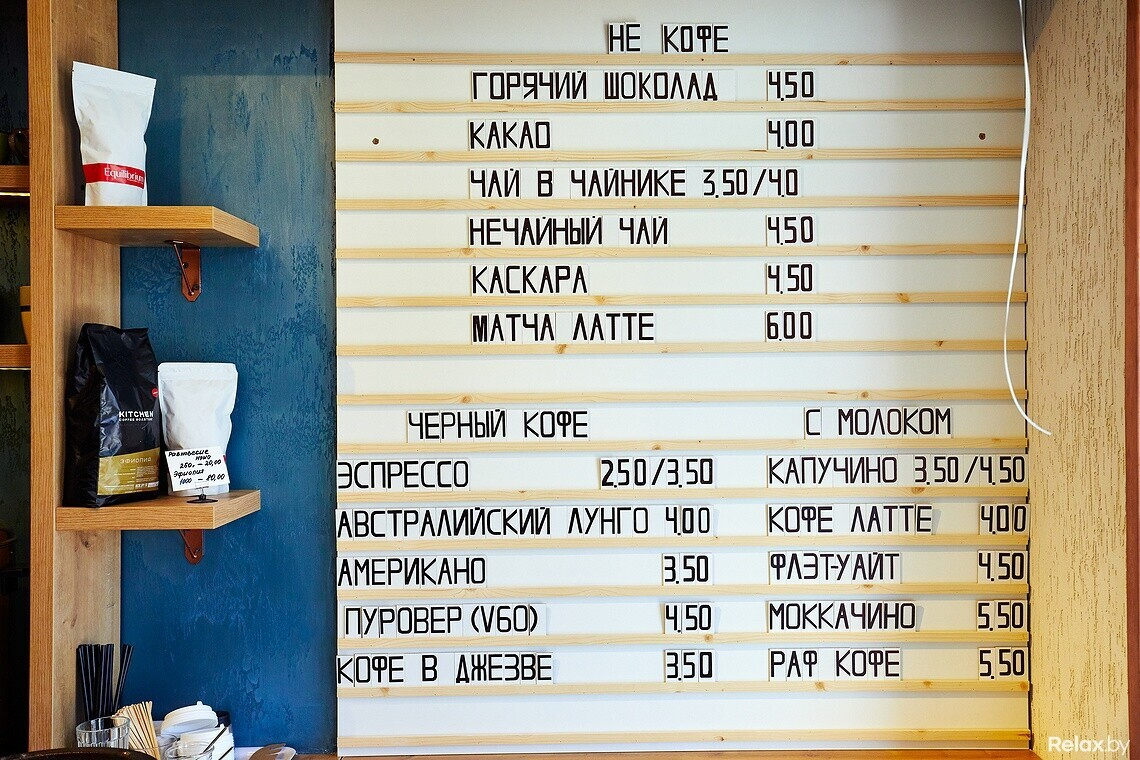 НЕ КОФЕ
ГОРЯЧИЙ ШОКОЛАД 4,50
КАКАО 4,00
ЧАЙ В ЧАЙНИКЕ 3,50/4,0
НЕЧАЙНЫЙ ЧАЙ 4,50
КАСКАРА 4,50
МАТЧА ЛАТТЕ 6,00
ЧЕРНЫЙ КОФЕ
ЭСПРЕССО 2,50/3,50
АВСТРАЛИЙСКИЙ ЛУНГО 4,00
АМЕРИКАНО 3,50
ПУРОВЕР (V60) 4,50
КОФЕ В ДЖЕЗВЕ 3,50
С МОЛОКОМ
КАПУЧИНО 3,50/4,50
КОФЕ ЛАТТЕ 4,00
ФЛЭТ-УАЙТ 4,50
МОККАЧИНО 5,50
РАФ КОФЕ 5,50
Equilibrium
KITCHEN
COFFEE ROASTERS
ЭФИОПИЯ
Равновесие
250. – 20,00
Эфиопия
1000 – 80,00
Relax.by